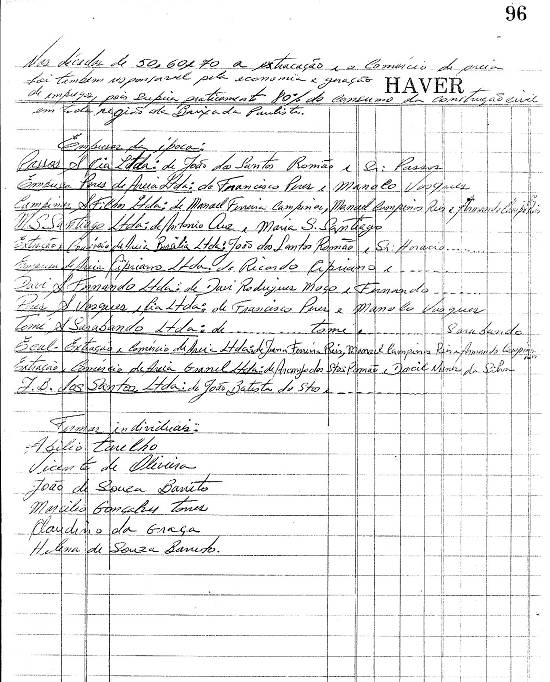 96
Nas décadas de 50, 60 e 70 a extracação e o Comércio de areia
foi também responsável pela economia e geração HAVER
de emprego, pois supria praticamente 80% do consumo da construção civil
em toda região da Baixada Paulista.
Empresas da época:
Passos & Cia Ltda: de João dos Santos Romão e Sr: Passos
Empresa Peres de Areia Ltda: de Francisco Peres e Manolo Vasques
Campinas & Filho Ltda: de Manoel Ferreira Campinas, Manoel Campinas Reis e Armando Campinas
N.S. Santiago Ltda: de Antonio Cruz e Maria S. Santiago
Extração e Comércio de Areia Rosália Ltda: João dos Santos Romão e Sr: Horacio
Empresa de Areia Cipriano Ltda: de Ricardo Cipriano e
Davi & Fernando Ltda: de Davi Rodrigues Moço e Fernando
Peres & Vasques e Cia Ltda: de Francisco Peres e Manolo Vasques
Tome & Sarabando Ltda: de Tome e Sarabando
Extração e Comércio de Areia Ltda: de Ferreira Reis, Manoel Campinas Reis e Armando Campinas
Extração e Comércio de Areia Granel Ltda: de dos Stos Romão e Nunes da Silva
J.B. dos Santos Ltda: de João Batista do Sto e
Firmas individuais:
Abílio
Vicente de Oliveira
João de Souza Barreto
Marcilio Gonçalves Torres
Claudino da Graça
Helena de Souza Barreto.